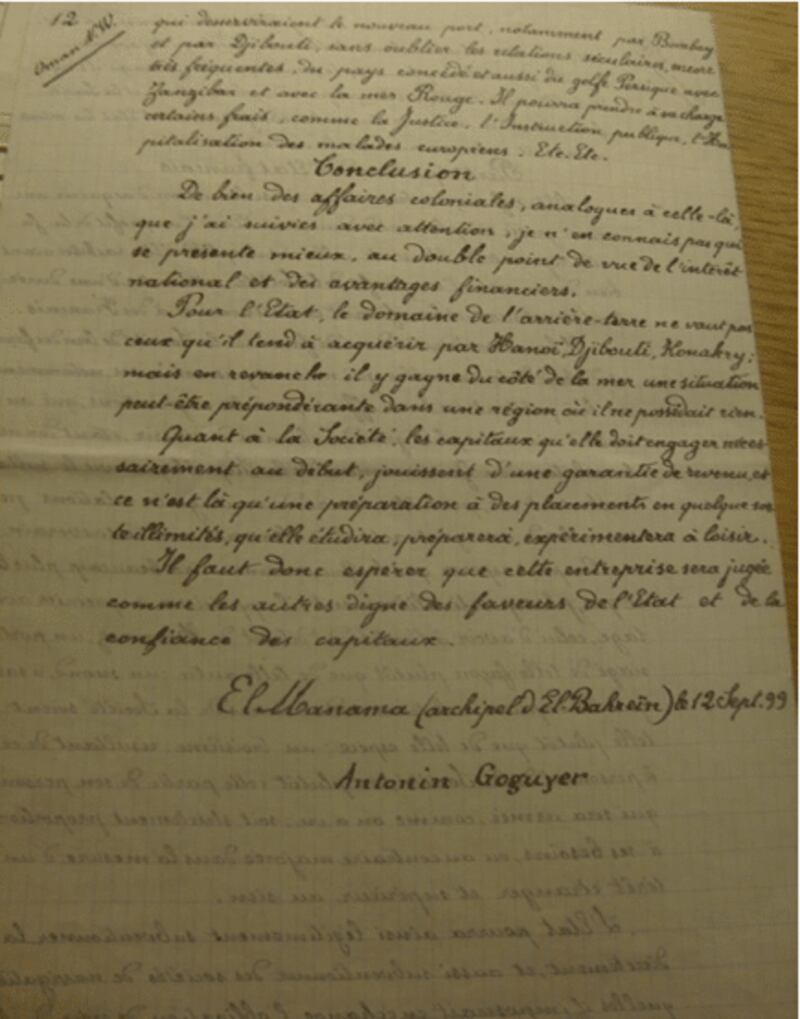 12
Oman N.W.
qui desserviraient le nouveau port, notamment par Bombay
et par Djibouti, sans oublier les relations séculaires, encore
très fréquentes, du pays concédé et aussi du golfe Persique avec
Zanzibar et avec la mer Rouge. Il pourra prendre à sa charge
certains frais, comme la Justice, l'Instruction publique, l'Hos
pitalisation des malades européens. Etc. Etc.
Conclusion
De bien des affaires coloniales, analogues à celle-là,
que j'ai suivies avec attention, je n'en connais pas qui
se présente mieux, au double point de vue de l'intérêt
national et des avantages financiers.
Pour l'Etat, le domaine de l'arrière-terre ne vaut pas
ceux qu'il tend à acquérir par Hanoï, Djibouti, Konakry;
mais en revanche il y gagne du côté de la mer une situation
peut-être prépondérante dans une région où il ne possédait rien.
Quant à la Société, les capitaux qu'elle doit engager néces-
sairement au début, jouissent d'une garantie de revenu, et
ce n'est là qu'une préparation à des placements en quelque sor
te illimités, qu'elle étudira, préparera, expérimentera à loisir.
Il faut donc espérer que cette entreprise sera jugée
comme les autres digne des faveurs de l'Etat et de la
confiance des capitaux.
El Manama (archipel d'El-Bahreïn) le 12 Sept. 99
Antonin Goguyer